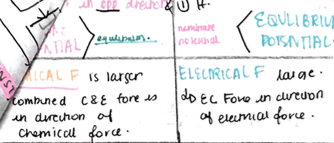 in opp direction
① H.
equilibrium.
NTIAL
membrane
potential
EQUILIBRIUM
POTENTIAL
ICAL F is larger
combined C&E force is
in direction of
chemical force.
ELECTRICAL F large.
EC Force in direction
of electrical force.